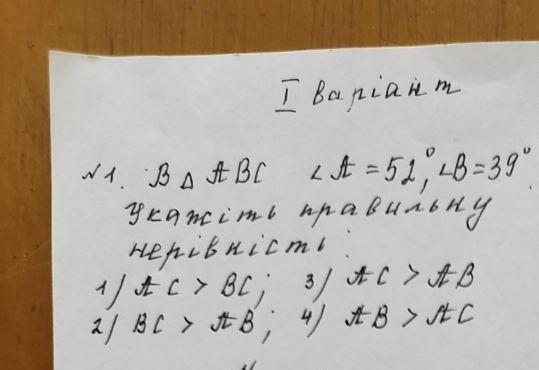 I варіант
№1. В △ ABC ∠A = 52°, ∠B = 39°.
Укажіть правильну
нерівність:
1) AC > BC; 3) AC > AB
2) BC > AB; 4) AB > AC